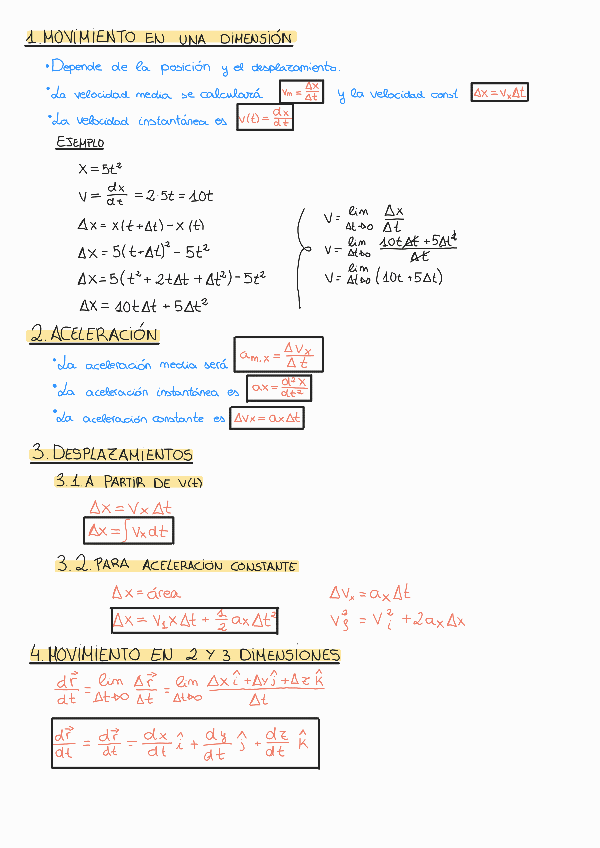 1. MOVIMIENTO EN UNA DIMENSIÓN
• Depende de la posición y el desplazamiento.
• La velocidad media se calculará Vm = Δx/Δt y la velocidad const Δx = Vx Δt
• La velocidad instantánea es V(t) = dx/dt
EJEMPLO
X = 5t²
V = dx/dt = 2·5t = 10t
Δx = x(t+Δt) - x(t)
Δx = 5(t-Δt)² - 5t²
Δx = 5(t² + 2tΔt + Δt²) - 5t²
Δx = 10tΔt + 5Δt²
V = lim Δt→0 Δx/Δt
V = lim Δt→0 10tΔt + 5Δt²/Δt
V = lim Δt→0 (10t + 5Δt)
2. ACELERACIÓN
• La aceleración media será am,x = ΔVx/Δt
• La aceleración instantánea es ax = d²x/dt²
• La aceleración constante es ΔVx = axΔt
3. DESPLAZAMIENTOS
3.1 A PARTIR DE V(t)
Δx = Vx Δt
Δx = ∫ Vx dt
3.2. PARA ACELERACIÓN CONSTANTE
Δx = área
Δx = V₁xΔt + 1/2 axΔt²
ΔVx = axΔt
Vf² = Vi² + 2axΔx
4. MOVIMIENTO EN 2 Y 3 DIMENSIONES
dr⃗/dt = lim Δt→0 Δr⃗/Δt = lim Δt→0 Δx î + Δy ĵ + Δz k̂/Δt
dr⃗/dt = dr⃗/dt = dx/dt î + dy/dt ĵ + dz/dt k̂